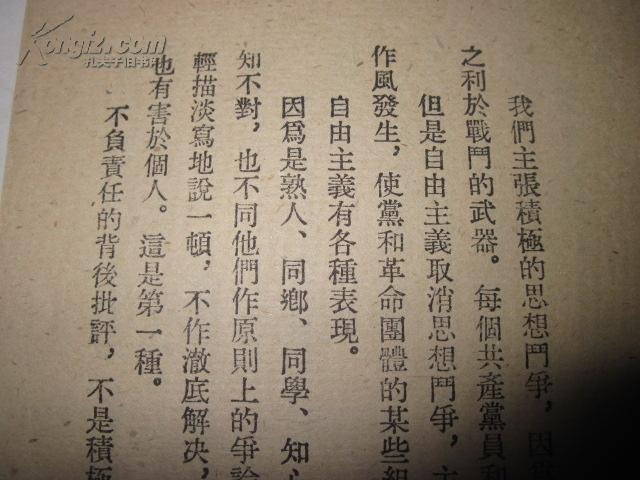 我們主張積極的思想鬥爭，因爲
之利於戰鬥的武器。每個共產黨員和
但是自由主義取消思想鬥爭，主
作風發生，使黨和革命團體的某些組
自由主義有各種表現。
因爲是熟人、同鄉、同學、知心
知不對，也不同他們作原則上的爭論
輕描淡寫地說一頓，不作澈底解決，
也有害於個人。這是第一種。
不負責任的背後批評，不是積極
Kongfz.com
孔夫子旧书网